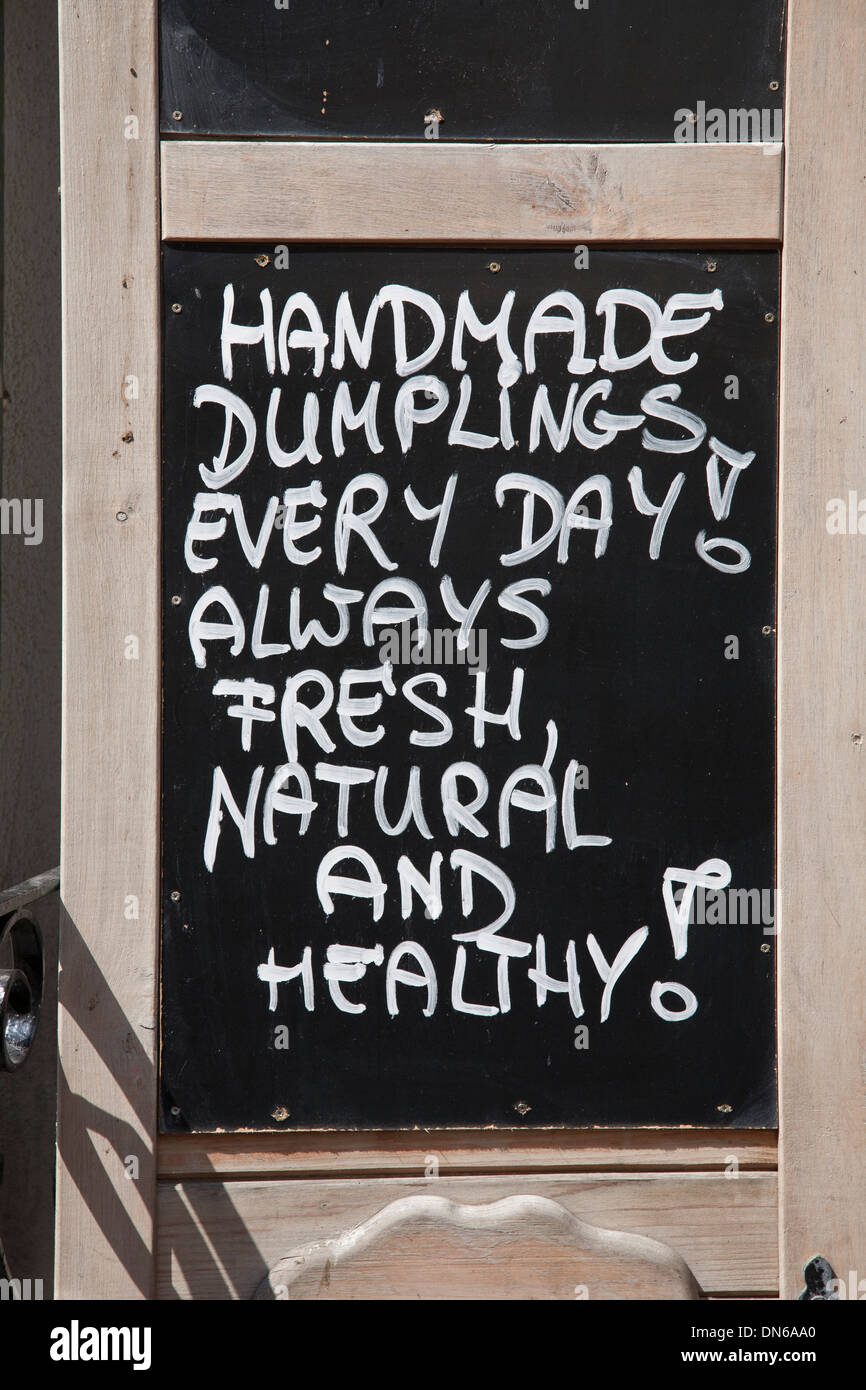 HANDMADE
DUMPLINGS,
EVERY DAY!
ALWAYS
FRESH,
NATURAL
AND
HEALTHY!
alamy
Image ID: DN6AA0
www.alamy.com